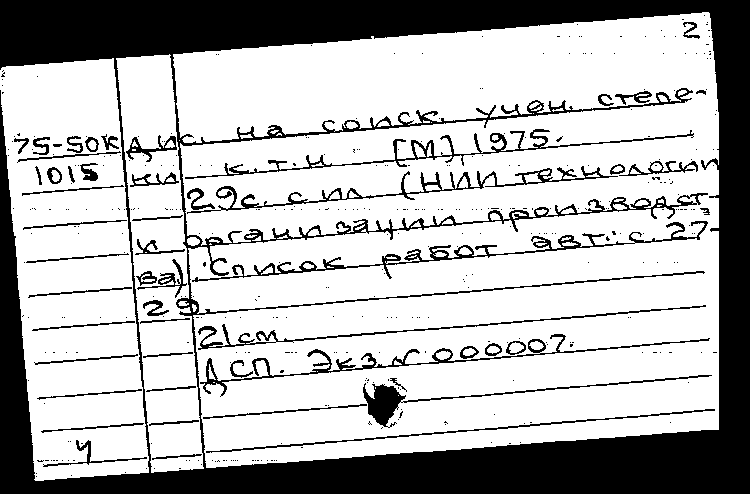 2
75-50К дис. на соиск. учен. степе-
1015 ни к.т.н [М], 1975.
29с. с ил (НИИ технологии
и организации производст-
ва). Список работ авт.: с. 27-
29.
21см.
ДСП. Экз. N 000007.